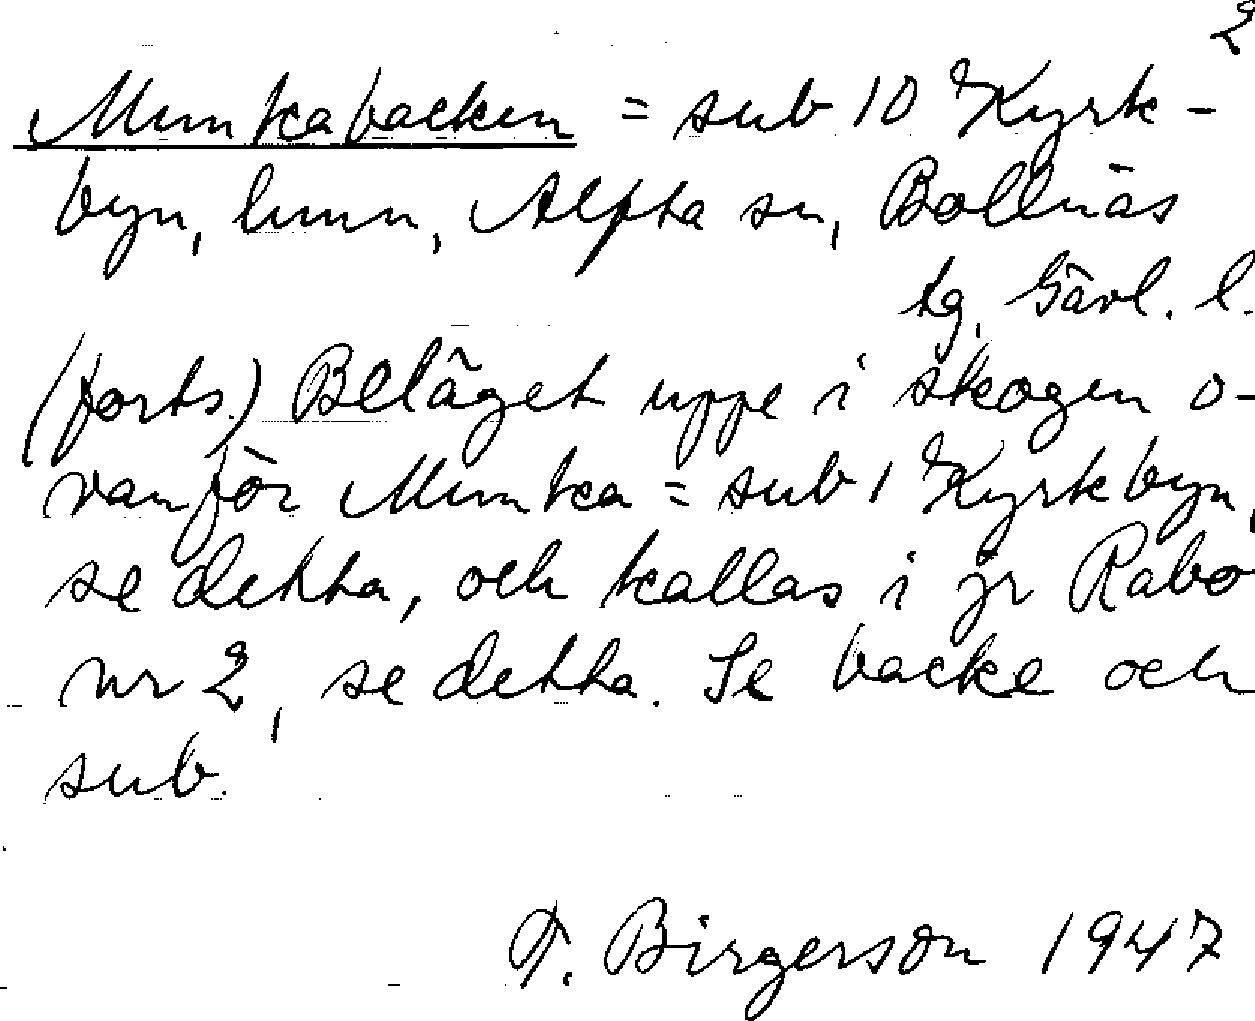 2
Munkabacken = sub 10 Kyrk-
byn, hmn, Alfta sn, Bollnäs
tg, Gävl. l.
(forts.) Beläget uppe i skogen o-
vanför Munka = sub 1 Kyrkbyn,
se detta, och kallas i jr Rabo
nr 2, se detta. Se backe och
sub.
F. Birgerson 1947